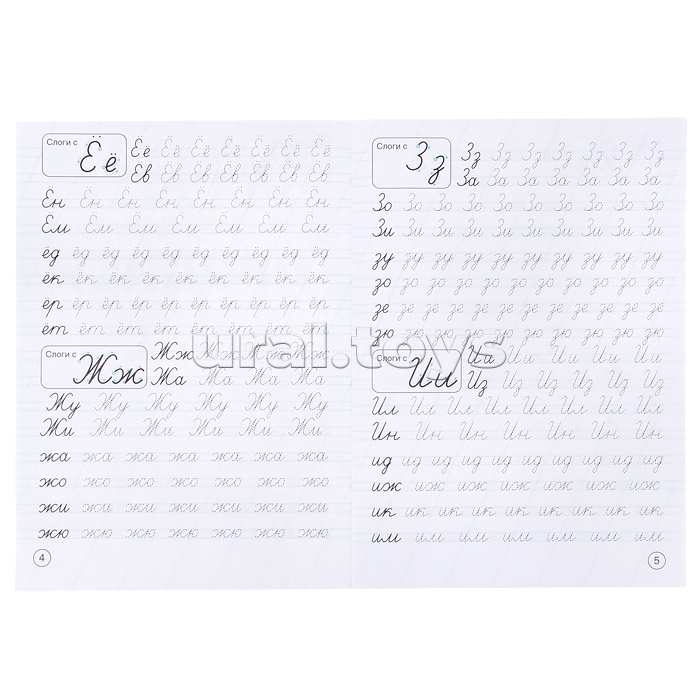 Слоги с Ёё
Ёе Ёё Ёё Ёё Ёё Ёё Ёё
Ёв Ёв Ёв Ёв Ёв Ёв Ёв
Ён Ён Ён Ён Ён Ён Ён
Ём Ём Ём Ём Ём Ём Ём
ёд ёд ёд ёд ёд ёд ёд ёд ёд ёд
ёк ёк ёк ёк ёк ёк ёк ёк ёк
ёр ёр ёр ёр ёр ёр ёр ёр ёр
ёт ёт ёт ёт ёт ёт ёт ёт
Слоги с Жж
Жж Жж Жж Жж Жж
Жа Жа Жа Жа Жа
Жу Жу Жу Жу Жу Жу Жу
Жи Жи Жи Жи Жи Жи Жи
жа жа жа жа жа жа жа
жо жо жо жо жо жо жо
жи жи жи жи жи жи жи
жю жю жю жю жю жю жю
4
Слоги с Зз
Зз Зз Зз Зз Зз Зз Зз
За За За За За За За
Зо Зо Зо Зо Зо Зо Зо Зо Зо
Зи Зи Зи Зи Зи Зи Зи Зи
зу зу зу зу зу зу зу зу зу
зо зо зо зо зо зо зо зо зо зо
зе зё зё зё зё зё зё зё зё зё зё
зю зю зю зю зю зю зю зю
Слоги с Ии
Ии Ии Ии Ии Ии Ии
Из Из Из Из Из Из
Ил Ил Ил Ил Ил Ил Ил Ил
Ин Ин Ин Ин Ин Ин Ин
ид ид ид ид ид ид ид ид ид ид
иж иж иж иж иж иж иж
ик ик ик ик ик ик ик ик ик
им им им им им им им
5
ural.toys